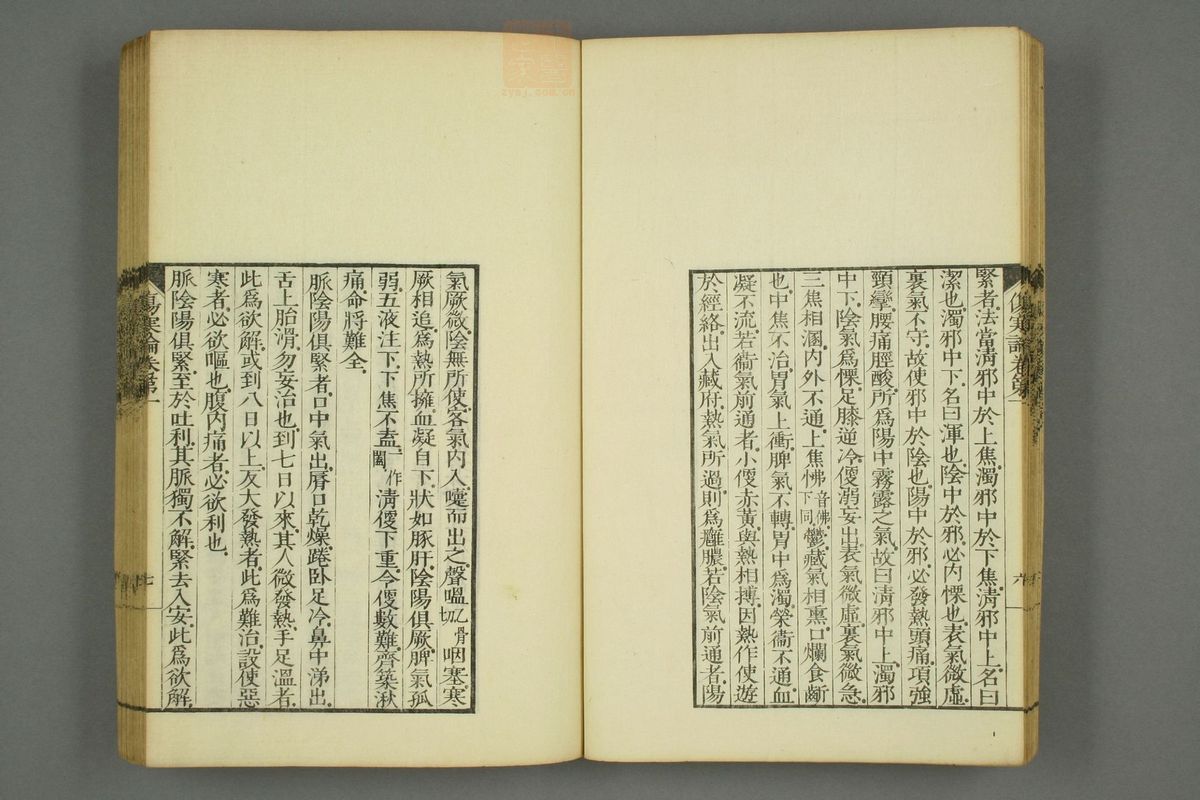 緊者法當淸邪中於上焦濁邪中於下焦淸邪中上名曰
潔也濁邪中下名曰渾也陰中於邪必內慄也表氣微虛
裏氣不守故使邪中於陰也陽中於邪必發熱頭痛項強
頸攣腰痛脛酸所爲陽中霧露之氣故曰淸邪中上濁邪
中下陰氣爲慄足膝逆冷便溺妄出表氣微虛裏氣微急
三焦相溷內外不通上焦怫音佛下同鬱藏氣相熏口爛食齗
也中焦不治胃氣上衝脾氣不轉胃中爲濁榮衞不通血
凝不流若衞氣前通者小便赤黃與熱相搏因熱作使遊
於經絡出入藏府熱氣所過則爲癰膿若陰氣前通者陽
傷寒論卷第一
六
氣厥微陰無所使客氣內入嚏而出之聲嗢乙骨切咽塞寒
厥相追爲熱所擁血凝自下狀如豚肝陰陽俱厥脾氣孤
弱五液注下下焦不盍一作闔淸便下重令便數難齊築湫
痛命將難全
脈陰陽俱緊者口中氣出脣口乾燥踡臥足冷鼻中涕出
舌上胎滑勿妄治也到七日以來其人微發熱手足溫者
此爲欲解或到八日以上反大發熱者此爲難治設使惡
寒者必欲嘔也腹內痛者必欲利也
脈陰陽俱緊至於吐利其脈獨不解緊去入安此爲欲解
傷寒論卷第一
七
zysj.com.cn